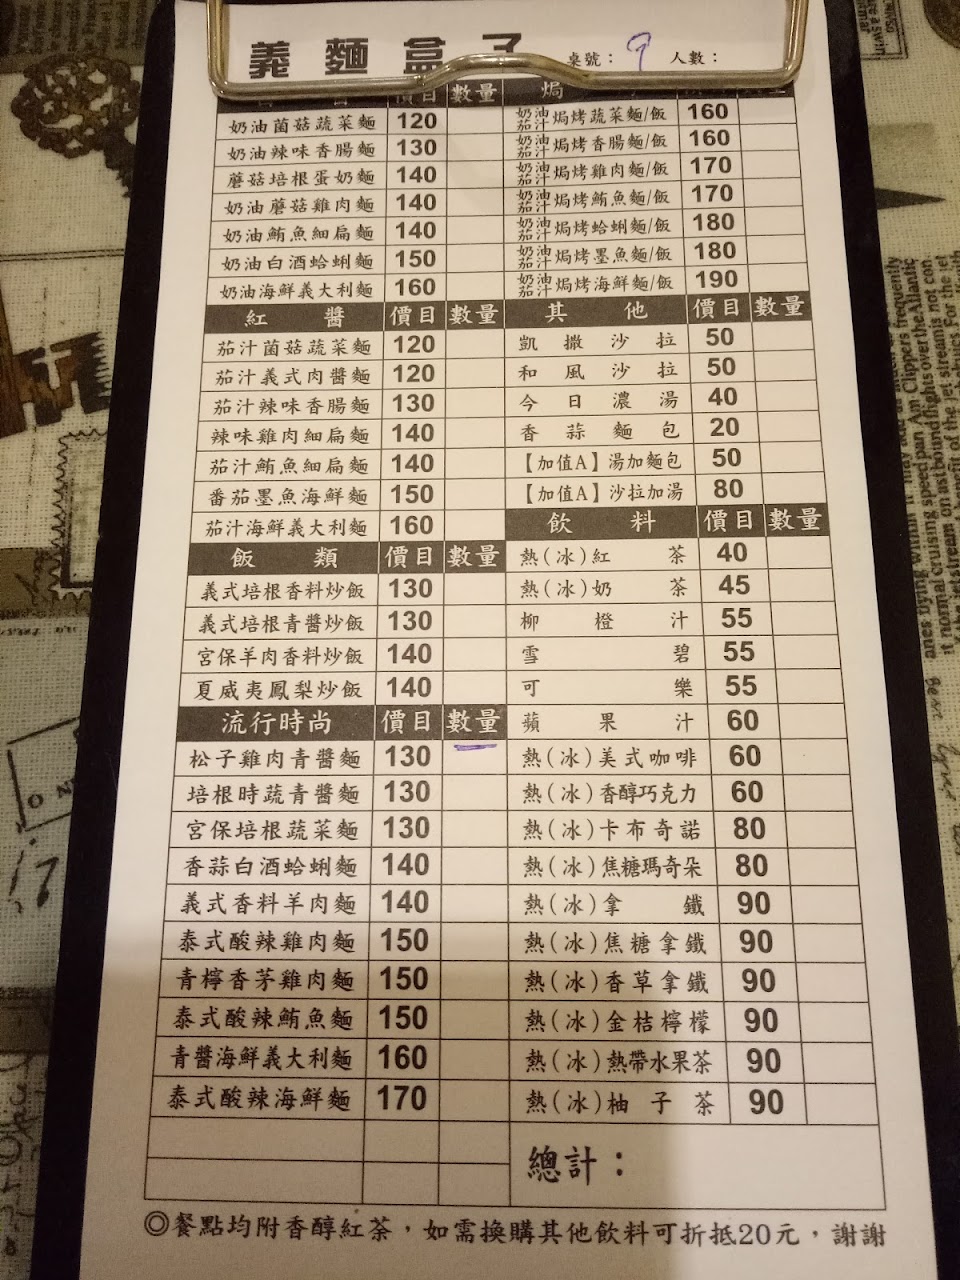 義麵盒子 桌號：9 人數：
價目 數量
奶油菌菇蔬菜麵 120
奶油辣味香腸麵 130
蘑菇培根蛋奶麵 140
奶油蘑菇雞肉麵 140
奶油鮪魚細扁麵 140
奶油白酒蛤蜊麵 150
奶油海鮮義大利麵 160
紅醬 價目 數量
茄汁菌菇蔬菜麵 120
茄汁義式肉醬麵 120
茄汁辣味香腸麵 130
辣味雞肉細扁麵 140
茄汁鮪魚細扁麵 140
番茄墨魚海鮮麵 150
茄汁海鮮義大利麵 160
飯類 價目 數量
義式培根香料炒飯 130
義式培根青醬炒飯 130
宮保羊肉香料炒飯 140
夏威夷鳳梨炒飯 140
流行時尚 價目 數量
松子雞肉青醬麵 130
培根時蔬青醬麵 130
宮保培根蔬菜麵 130
香蒜白酒蛤蜊麵 140
義式香料羊肉麵 140
泰式酸辣雞肉麵 150
青檸香茅雞肉麵 150
泰式酸辣鮪魚麵 150
青醬海鮮義大利麵 160
泰式酸辣海鮮麵 170
焗 數量
奶油茄汁焗烤蔬菜麵/飯 160
奶油茄汁焗烤香腸麵/飯 160
奶油茄汁焗烤雞肉麵/飯 170
奶油茄汁焗烤鮪魚麵/飯 170
奶油茄汁焗烤蛤蜊麵/飯 180
奶油茄汁焗烤墨魚麵/飯 180
奶油茄汁焗烤海鮮麵/飯 190
其他 價目 數量
凱撒沙拉 50
和風沙拉 50
今日濃湯 40
香蒜麵包 20
【加值A】湯加麵包 50
【加值A】沙拉加湯 80
飲料 價目 數量
熱(冰)紅茶 40
熱(冰)奶茶 45
柳橙汁 55
雪碧 55
可樂 55
蘋果汁 60
熱(冰)美式咖啡 60
熱(冰)香醇巧克力 60
熱(冰)卡布奇諾 80
熱(冰)焦糖瑪奇朵 80
熱(冰)拿鐵 90
熱(冰)焦糖拿鐵 90
熱(冰)香草拿鐵 90
熱(冰)金桔檸檬 90
熱(冰)熱帶水果茶 90
熱(冰)柚子茶 90
總計：
◎餐點均附香醇紅茶，如需換購其他飲料可折抵20元，謝謝